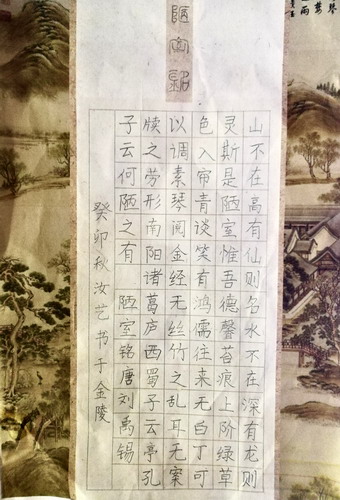 陋室銘
山不在高有仙则名水不在深有龙则
灵斯是陋室惟吾德馨苔痕上阶绿草
色入帘青谈笑有鸿儒往来无白丁可
以调素琴阅金经无丝竹之乱耳无案
牍之劳形南阳诸葛庐西蜀子云亭孔
子云何陋之有 陋室铭唐刘禹锡
癸卯秋汝艺书于金陵